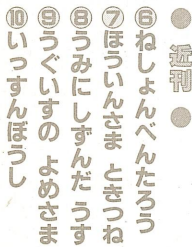 近刊
⑥ねしょんべんたろう
⑦ほういんさま ときつね
⑧うみにしずんだ うす
⑨うぐいすの よめさま
⑩いっすんぼうし